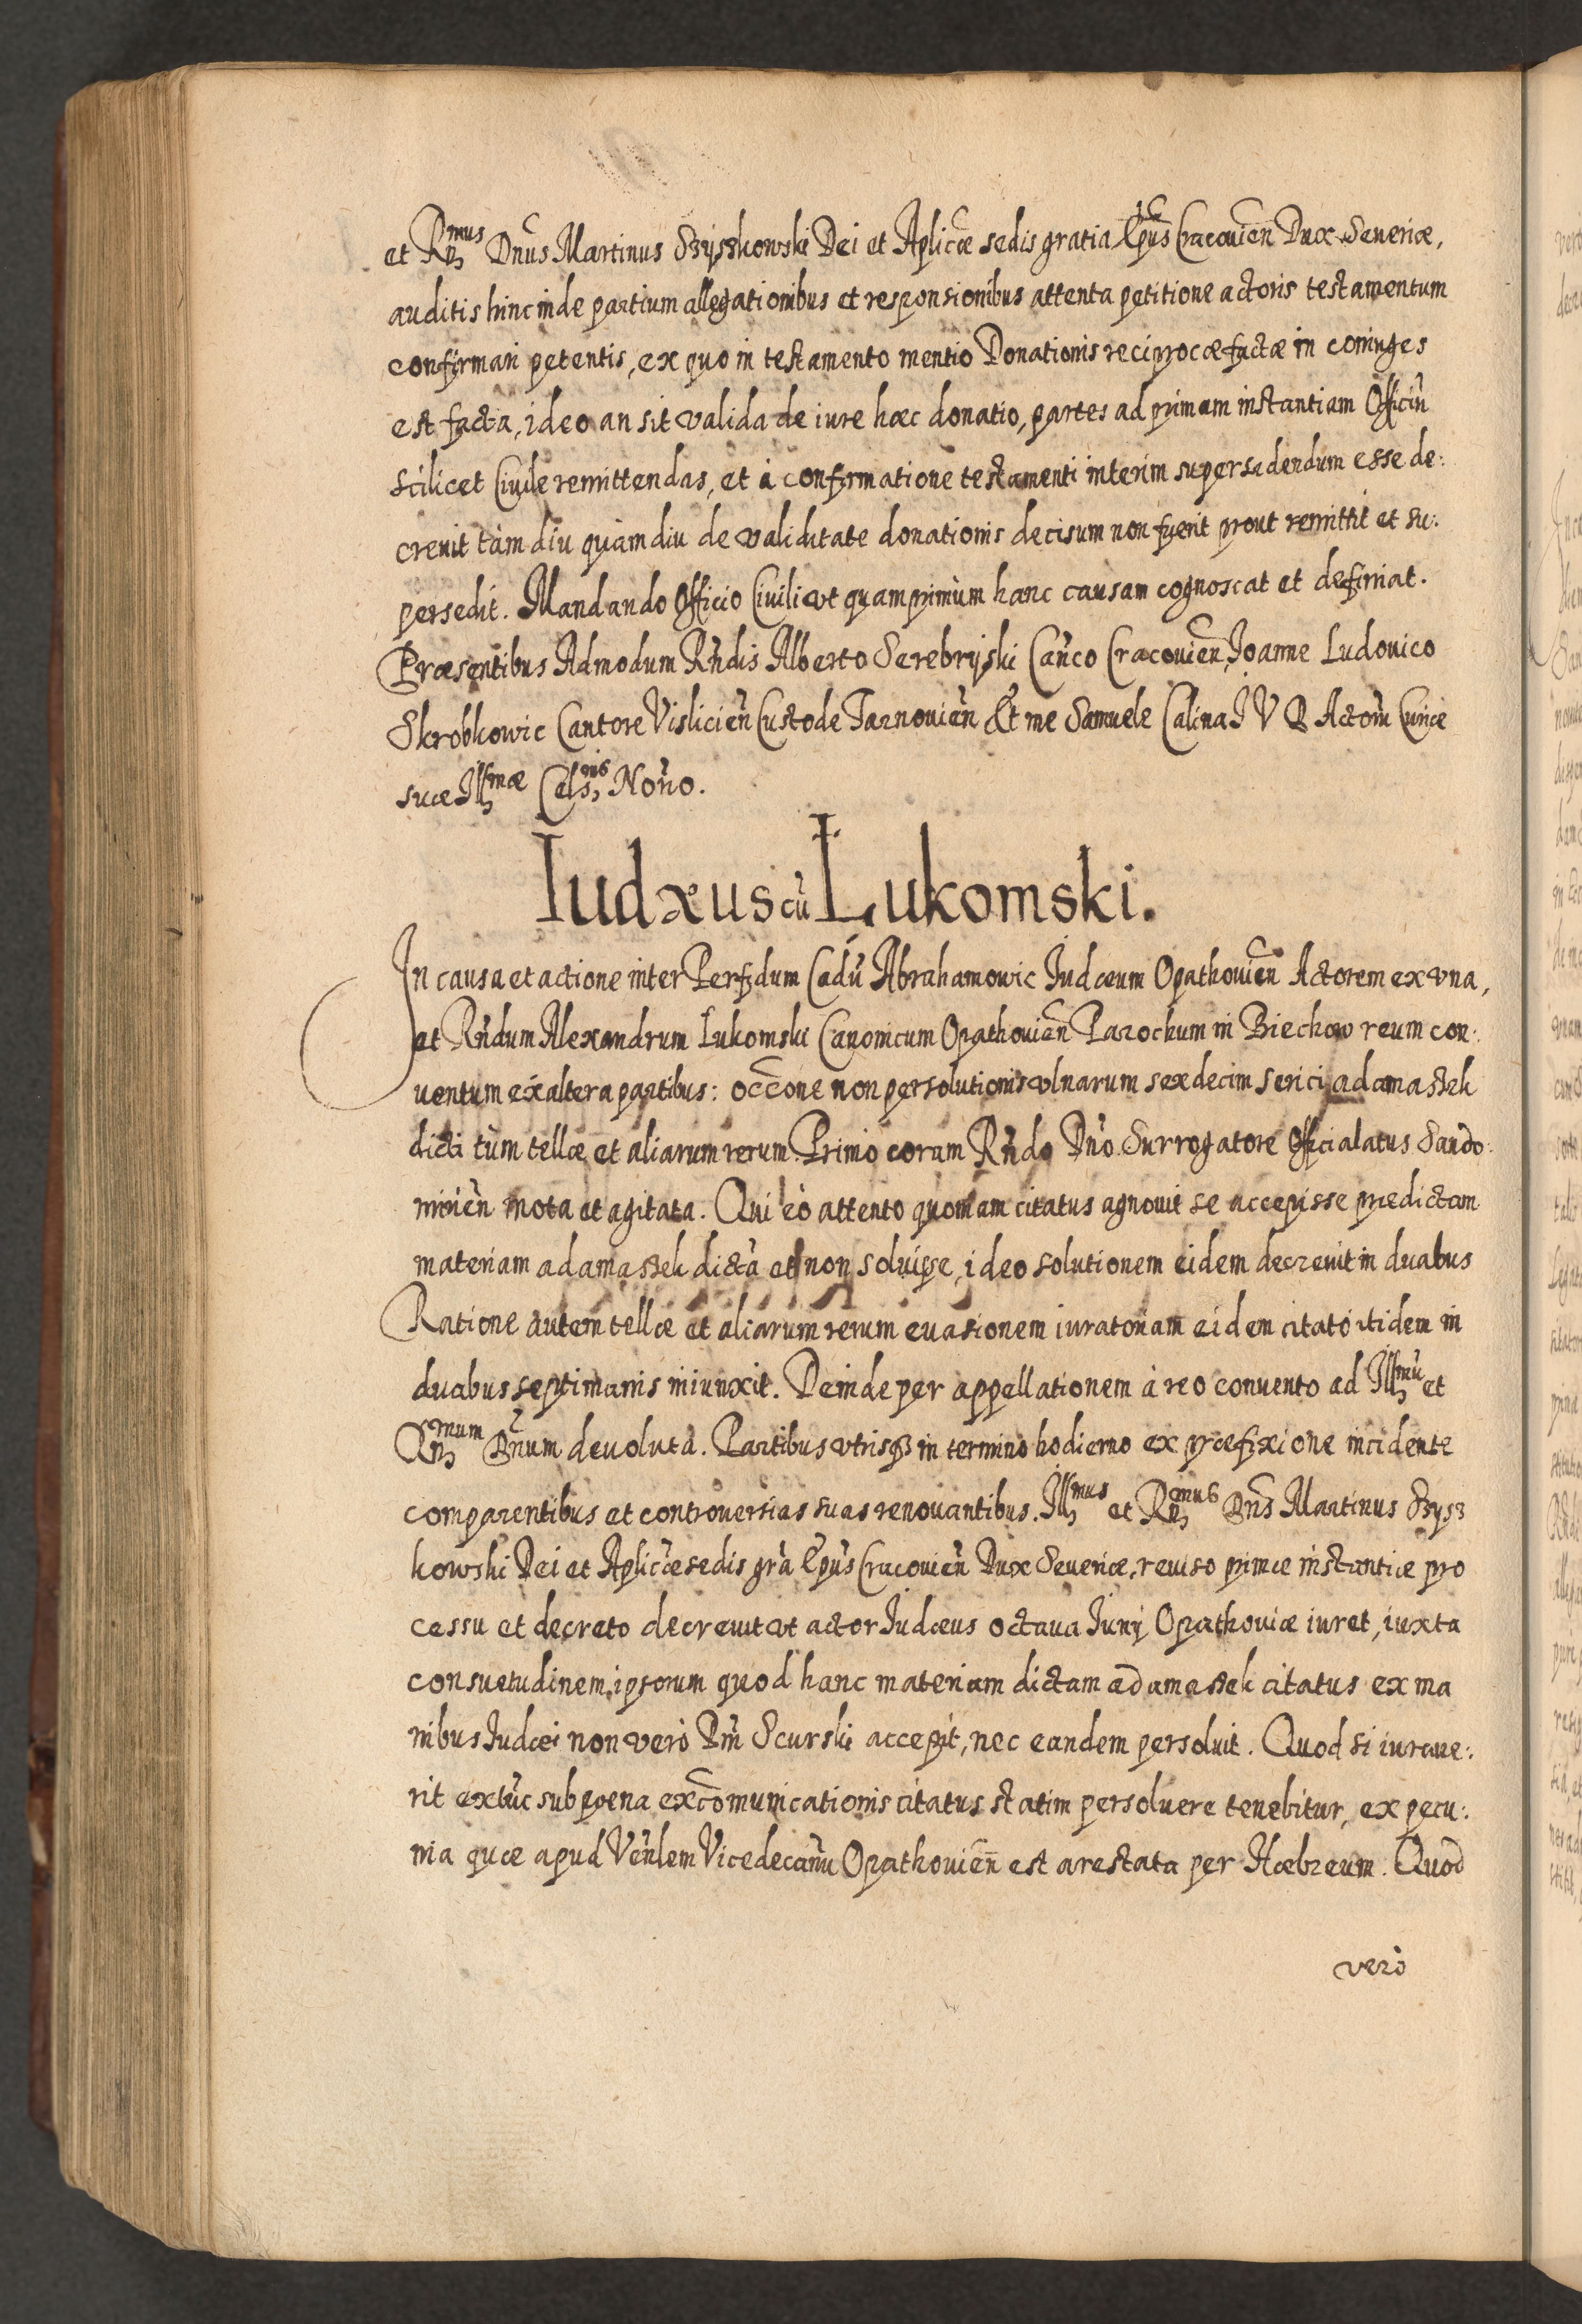 et Rndmus Dnus Martinus Szyszkowski Dei et Aplicæ sedis gratia Epus Cracovien Dux Severiæ,
auditis hinc inde partium allegationibus et responsionibus attenta petitione actoris testamentum
confirmari petentis, ex quo in testamento mentio Donationis reciprocæ factæ in coniuges
est facta, ideo an sit valida de iure hæc donatio, partes ad primam instantiam Officiu
scilicet Ciuile remittendas, et à confirmatione testamenti interim supersedendum esse de:
creuit tàm diu quàm diu de validitate donationis decisum non fuerit prout remittit et su:
persedit. Mandando Officio Ciuili vt quamprimùm hanc causam cognoscat et definiat.
Præsentibus Admodum Rndis Alberto Serebryski Canco Cracouien, Joanne Ludouico
Skrobkowic Cantore Vislicien Custode Tarnouien Et me Samuele Calina I V D Actoru Curiæ
suæ Illmæ Celsnis Norio.
Iudæus cu Lukomski.
In causa et actione inter Perfidum Cadu Abrahamowic Judæum Opathouien Actorem ex vna,
et Rndum Alexandrum Lukomski Canonicum Opathouien Parochum in Biechow reum con:
uentum ex altera partibus: occone non persolutionis vlnarum sexdecim serici adamastek
dicti tùm tellæ et aliarum rerum Primo coram Rndo Dno Surrogatore Officialatus Sando:
mirien mota et agitata. Qui eò attento quoniam citatus agnouit se accepisse prædictam
materiam adamastek dictà et non soluisse, ideo solutionem eidem decreuit in duabus
Ratione autem tellæ et aliarum rerum euasionem iuratoriam eidem citato itidem in
duabus septimanis iniunxit. Deinde per appellationem à reo conuento ad Illmu et
Rndmum Dnum deuoluta. Partibus vtrisq in termino hodierno ex præfixione incidente
comparentibus et controuersias suas renouantibus. Illmus et Rndmus Dns Martinus Szysz
kowski Dei et Aplicæ sedis grà Epus Cracouien Dux Seueriæ, reuiso primæ instantiæ pro
cessu et decreto decreuit vt actor Judæus octaua Junij Opathouiæ iuret, iuxta
consuetudinem ipsorum quod hanc materiam dictam adamastek citatus ex ma
nibus Judæi non verò Dni Scurski accepit, nec eandem persoluit. Quod si iuraue:
rit extuc sub poena excomunicationis citatus statim persoluere tenebitur, ex pecu:
nia quæ apud Venlem Vicedecanu Opathouien est arestata per Hæbreum. Quod
verò